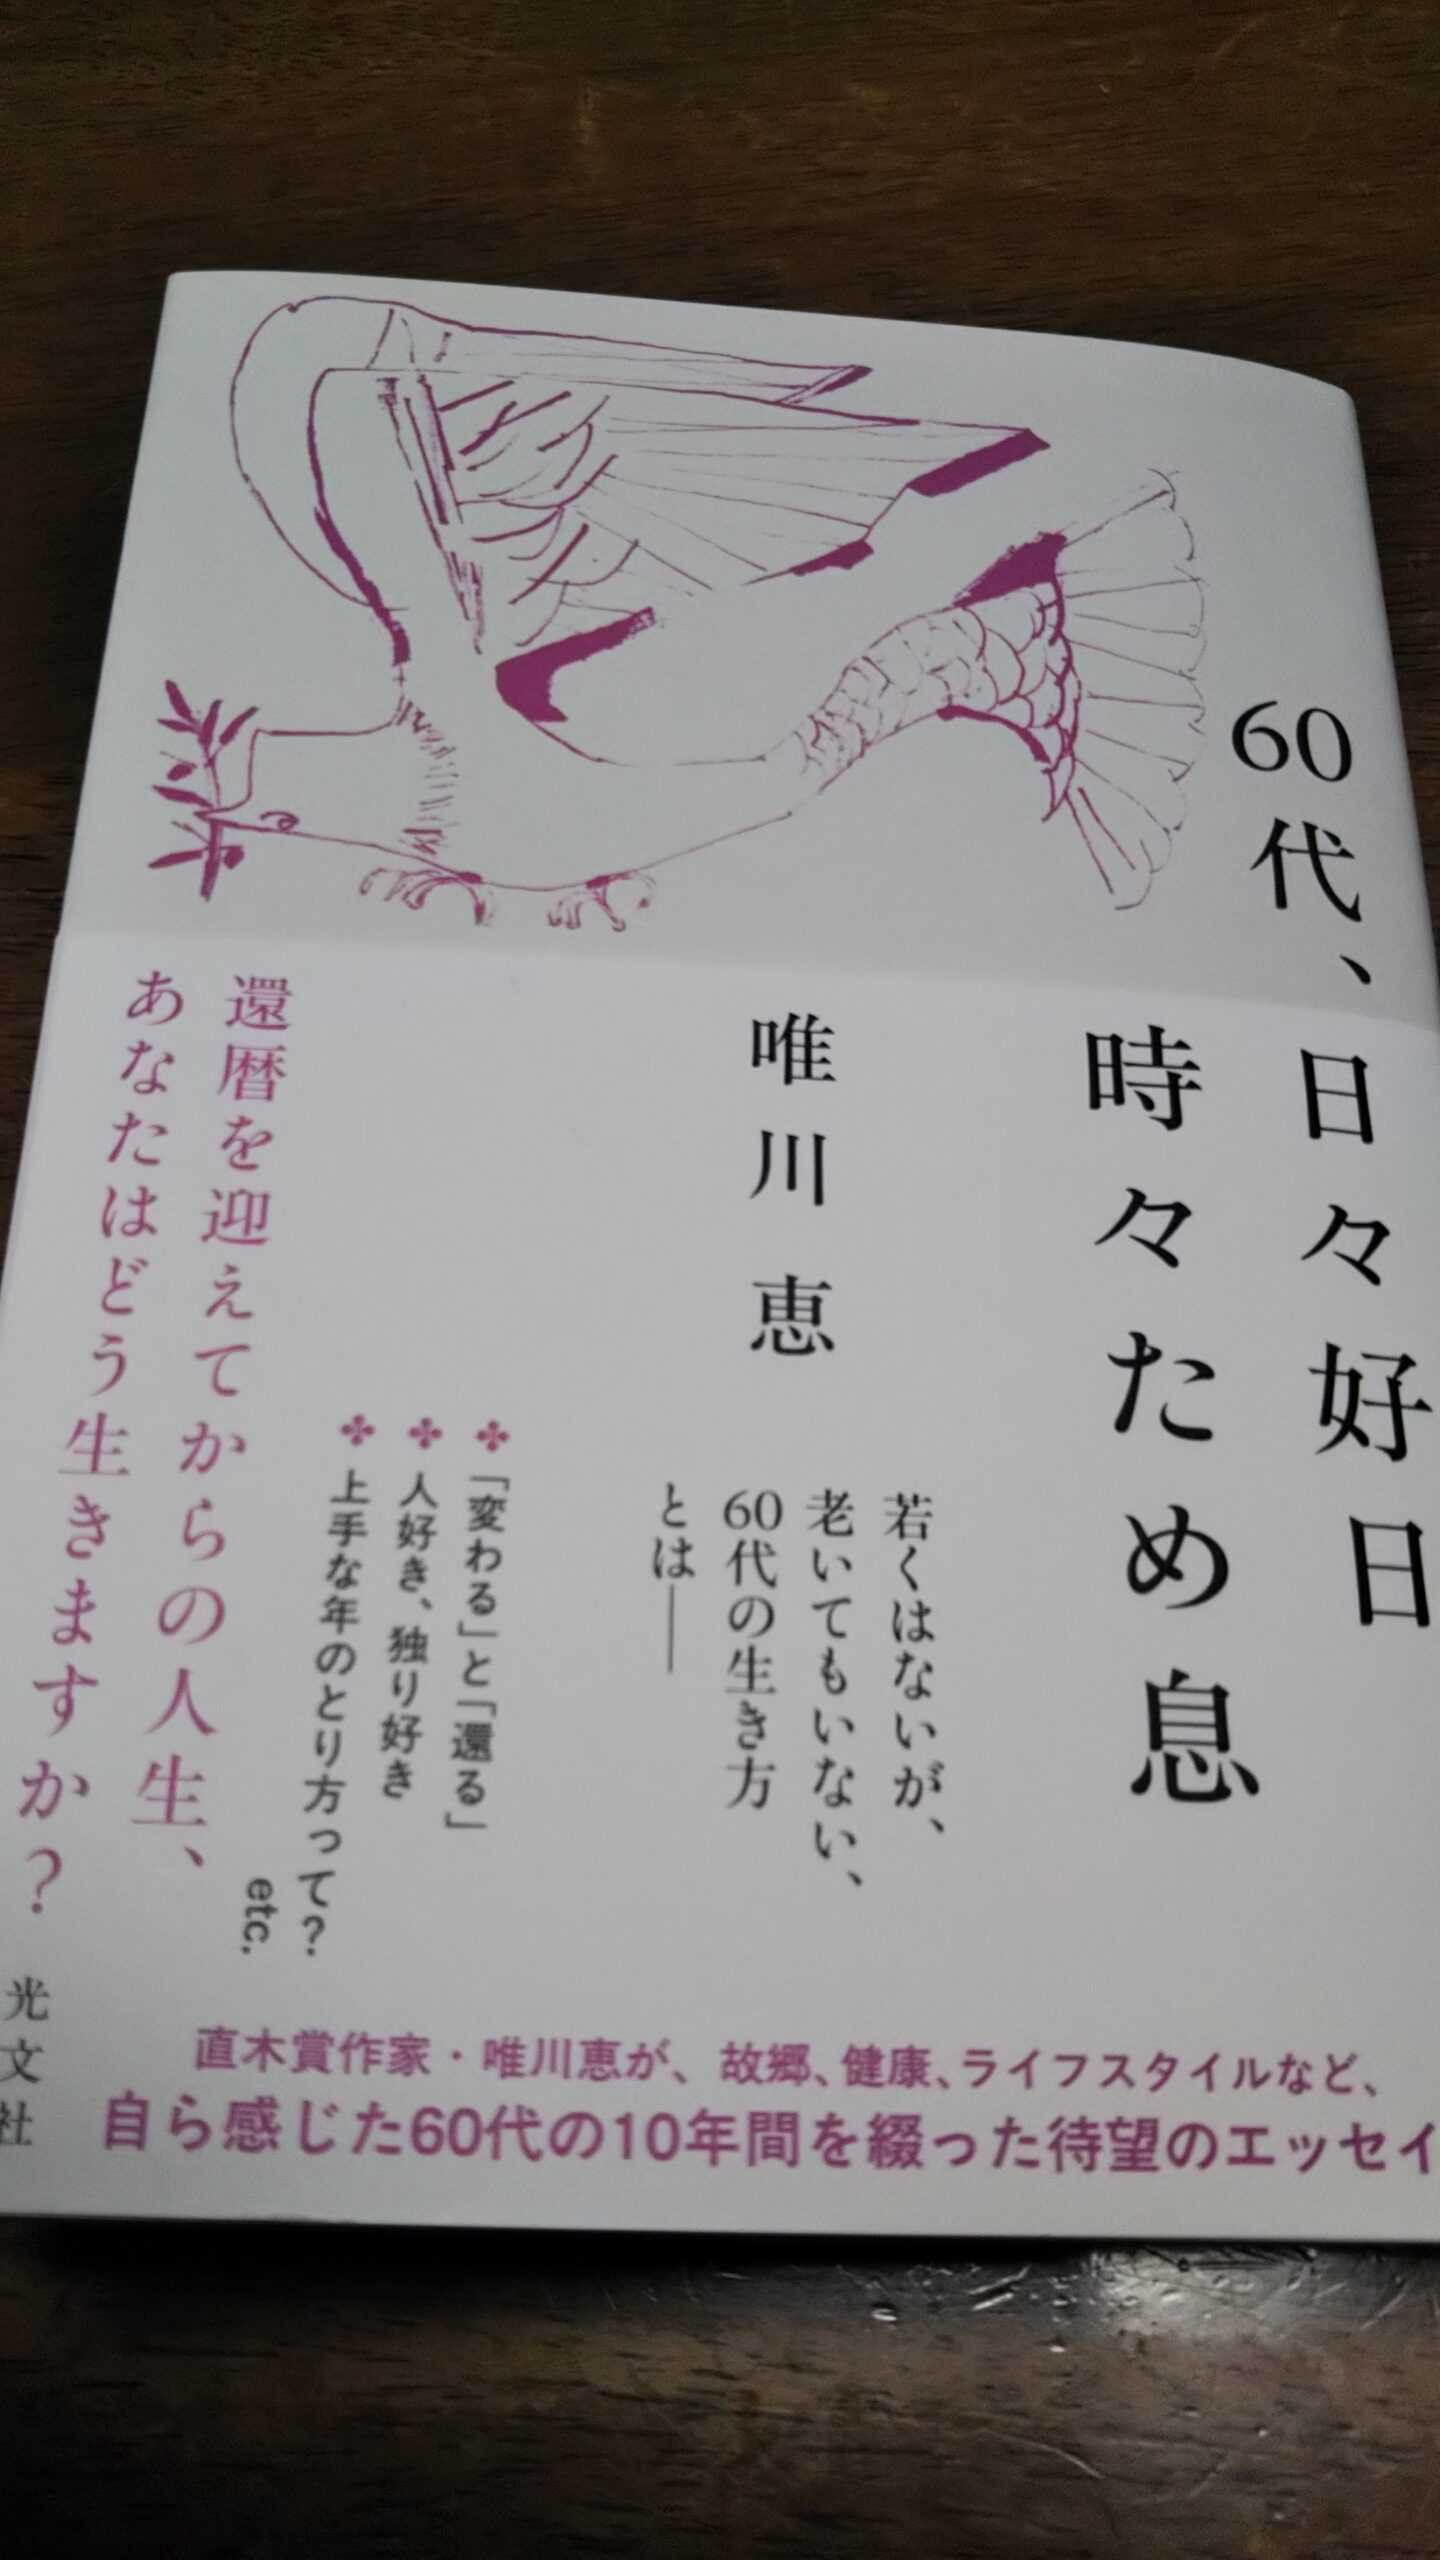 60代、日々好日
時々ため息
唯川 恵
若くはないが、
老いてもいない、
60代の生き方
とは――
「変わる」と「還る」
人好き、独り好き
上手な年のとり方って?
etc.
還暦を迎えてからの人生、
あなたはどう生きますか?
光文社
直木賞作家・唯川恵が、故郷、健康、ライフスタイルなど、
自ら感じた60代の10年間を綴った待望のエッセイ